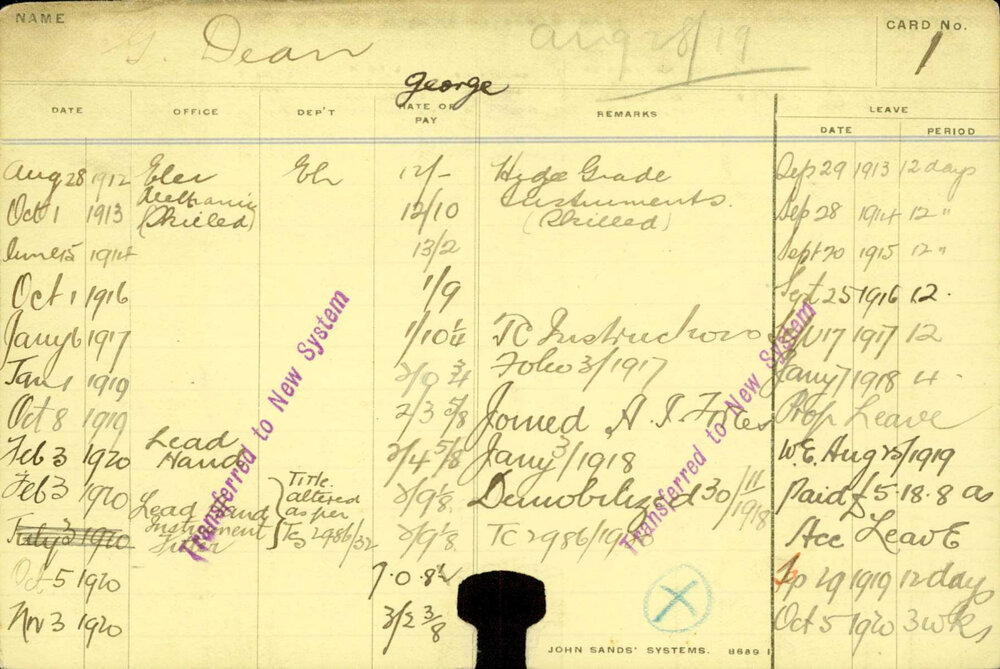 NAME
G. Dean
Aug 28/19
CARD No.
1
George
DATE OFFICE DEP'T RATE OF PAY REMARKS LEAVE
DATE PERIOD
Aug 28 1912 Elec Eh 12/- High Grade Sep 29 1913 12 days
Mechanic Instruments.
Oct 1 1913 (Skilled) 12/10 (Skilled) Sep 28 1914 12 "
June 15 1914 13/2 Sept 20 1915 12 "
Oct 1 1916 1/9 Sept 25 1916 12.
Jany 6 1917 1/10 1/4 TC Instructions 17 1917 12
Folio 3/1917
Jan 1 1919 2/0 3/4 Jany 7 1918 4.
Oct 8 1919 2/3 5/8 Joined A.I. Forces Prop Leave
Lead
Feb 3 1920 Hand 2/4 5/8 Jany 3/1918 W.E. Aug 23/1919
Feb 3 1920 Lead Hand Title altered 2/9 1/8 Demobilized 30/11/1918 Paid £5.18.8 as
July 3 1920 Instrument as per Tc 2986/32 2/9 1/8 TC 2986/19 Acc Leave
Oct 5 1920 7.0.8 Sp 29 1919 12 days
Nov 3 1920 3/2 3/8 Oct 5 1920 3 wks
Transferred to New System
Transferred to New System
X
JOHN SANDS' SYSTEMS. 8689